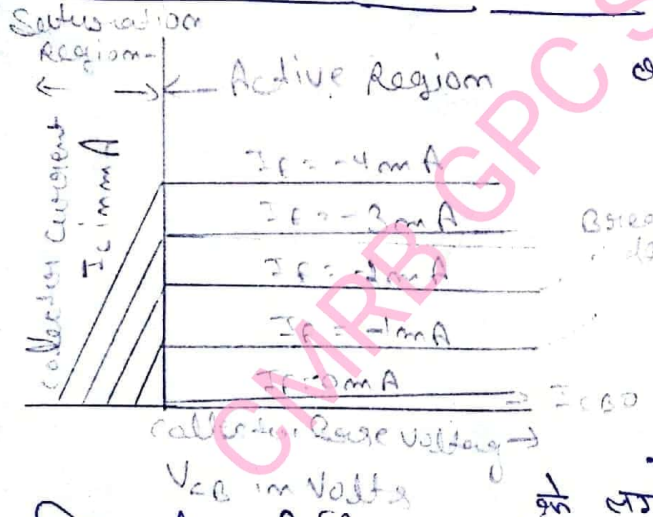 Saturation
Region
Active Region
Collector Current
Ic in mA
IE = -4mA
IE = -3mA
IE = -2mA
IE = -1mA
IE = 0mA
ICBO
Collector Base Voltag
VCB in Volts
CMRB GPC S